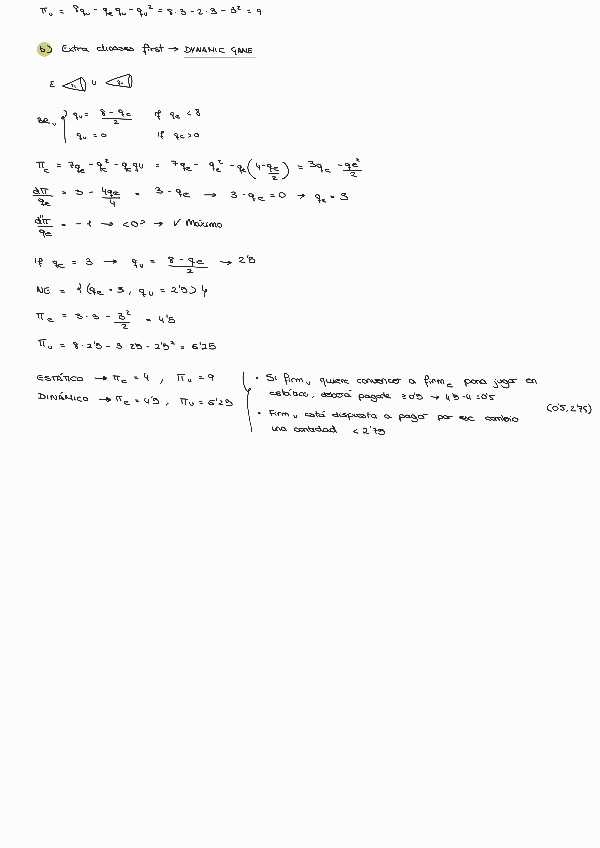 π_u = 8q_u - q_e q_u - q_u² = 8·3 - 2·3 - 3² = 9
b) Extra chooses first → DYNAMIC GAME
E U
BR_u { q_u = (8 - q_e)/2 if q_e < 8
q_u = 0 if q_e > 0
π_e = 7q_e - q_e² - q_e q_u = 7q_e - q_e² - q_e(4 - q_e/2) = 3q_e - q_e²/2
dπ/q_e = 3 - 4q_e/4 = 3 - q_e → 3 - q_e = 0 → q_e = 3
d''π/q_e = -1 → <0? → √ Máximo
if q_e = 3 → q_u = (8 - q_e)/2 → 2'5
NE = {(q_e = 3, q_u = 2'5)}
π_e = 3·3 - 3²/2 = 4'5
π_u = 8·2'5 - 3·2'5 - 2'5² = 6'25
ESTÁTICO → π_e = 4, π_u = 9
DINÁMICO → π_e = 4'5, π_u = 6'25
• Si firm_u quiere convencer a firm_e para jugar en
estático, deberá pagarle ≥ 0'5 → 4'5 - 4 = 0'5
• Firm_u está dispuesta a pagar por ese cambio
una cantidad < 2'75
(0'5, 2'75)